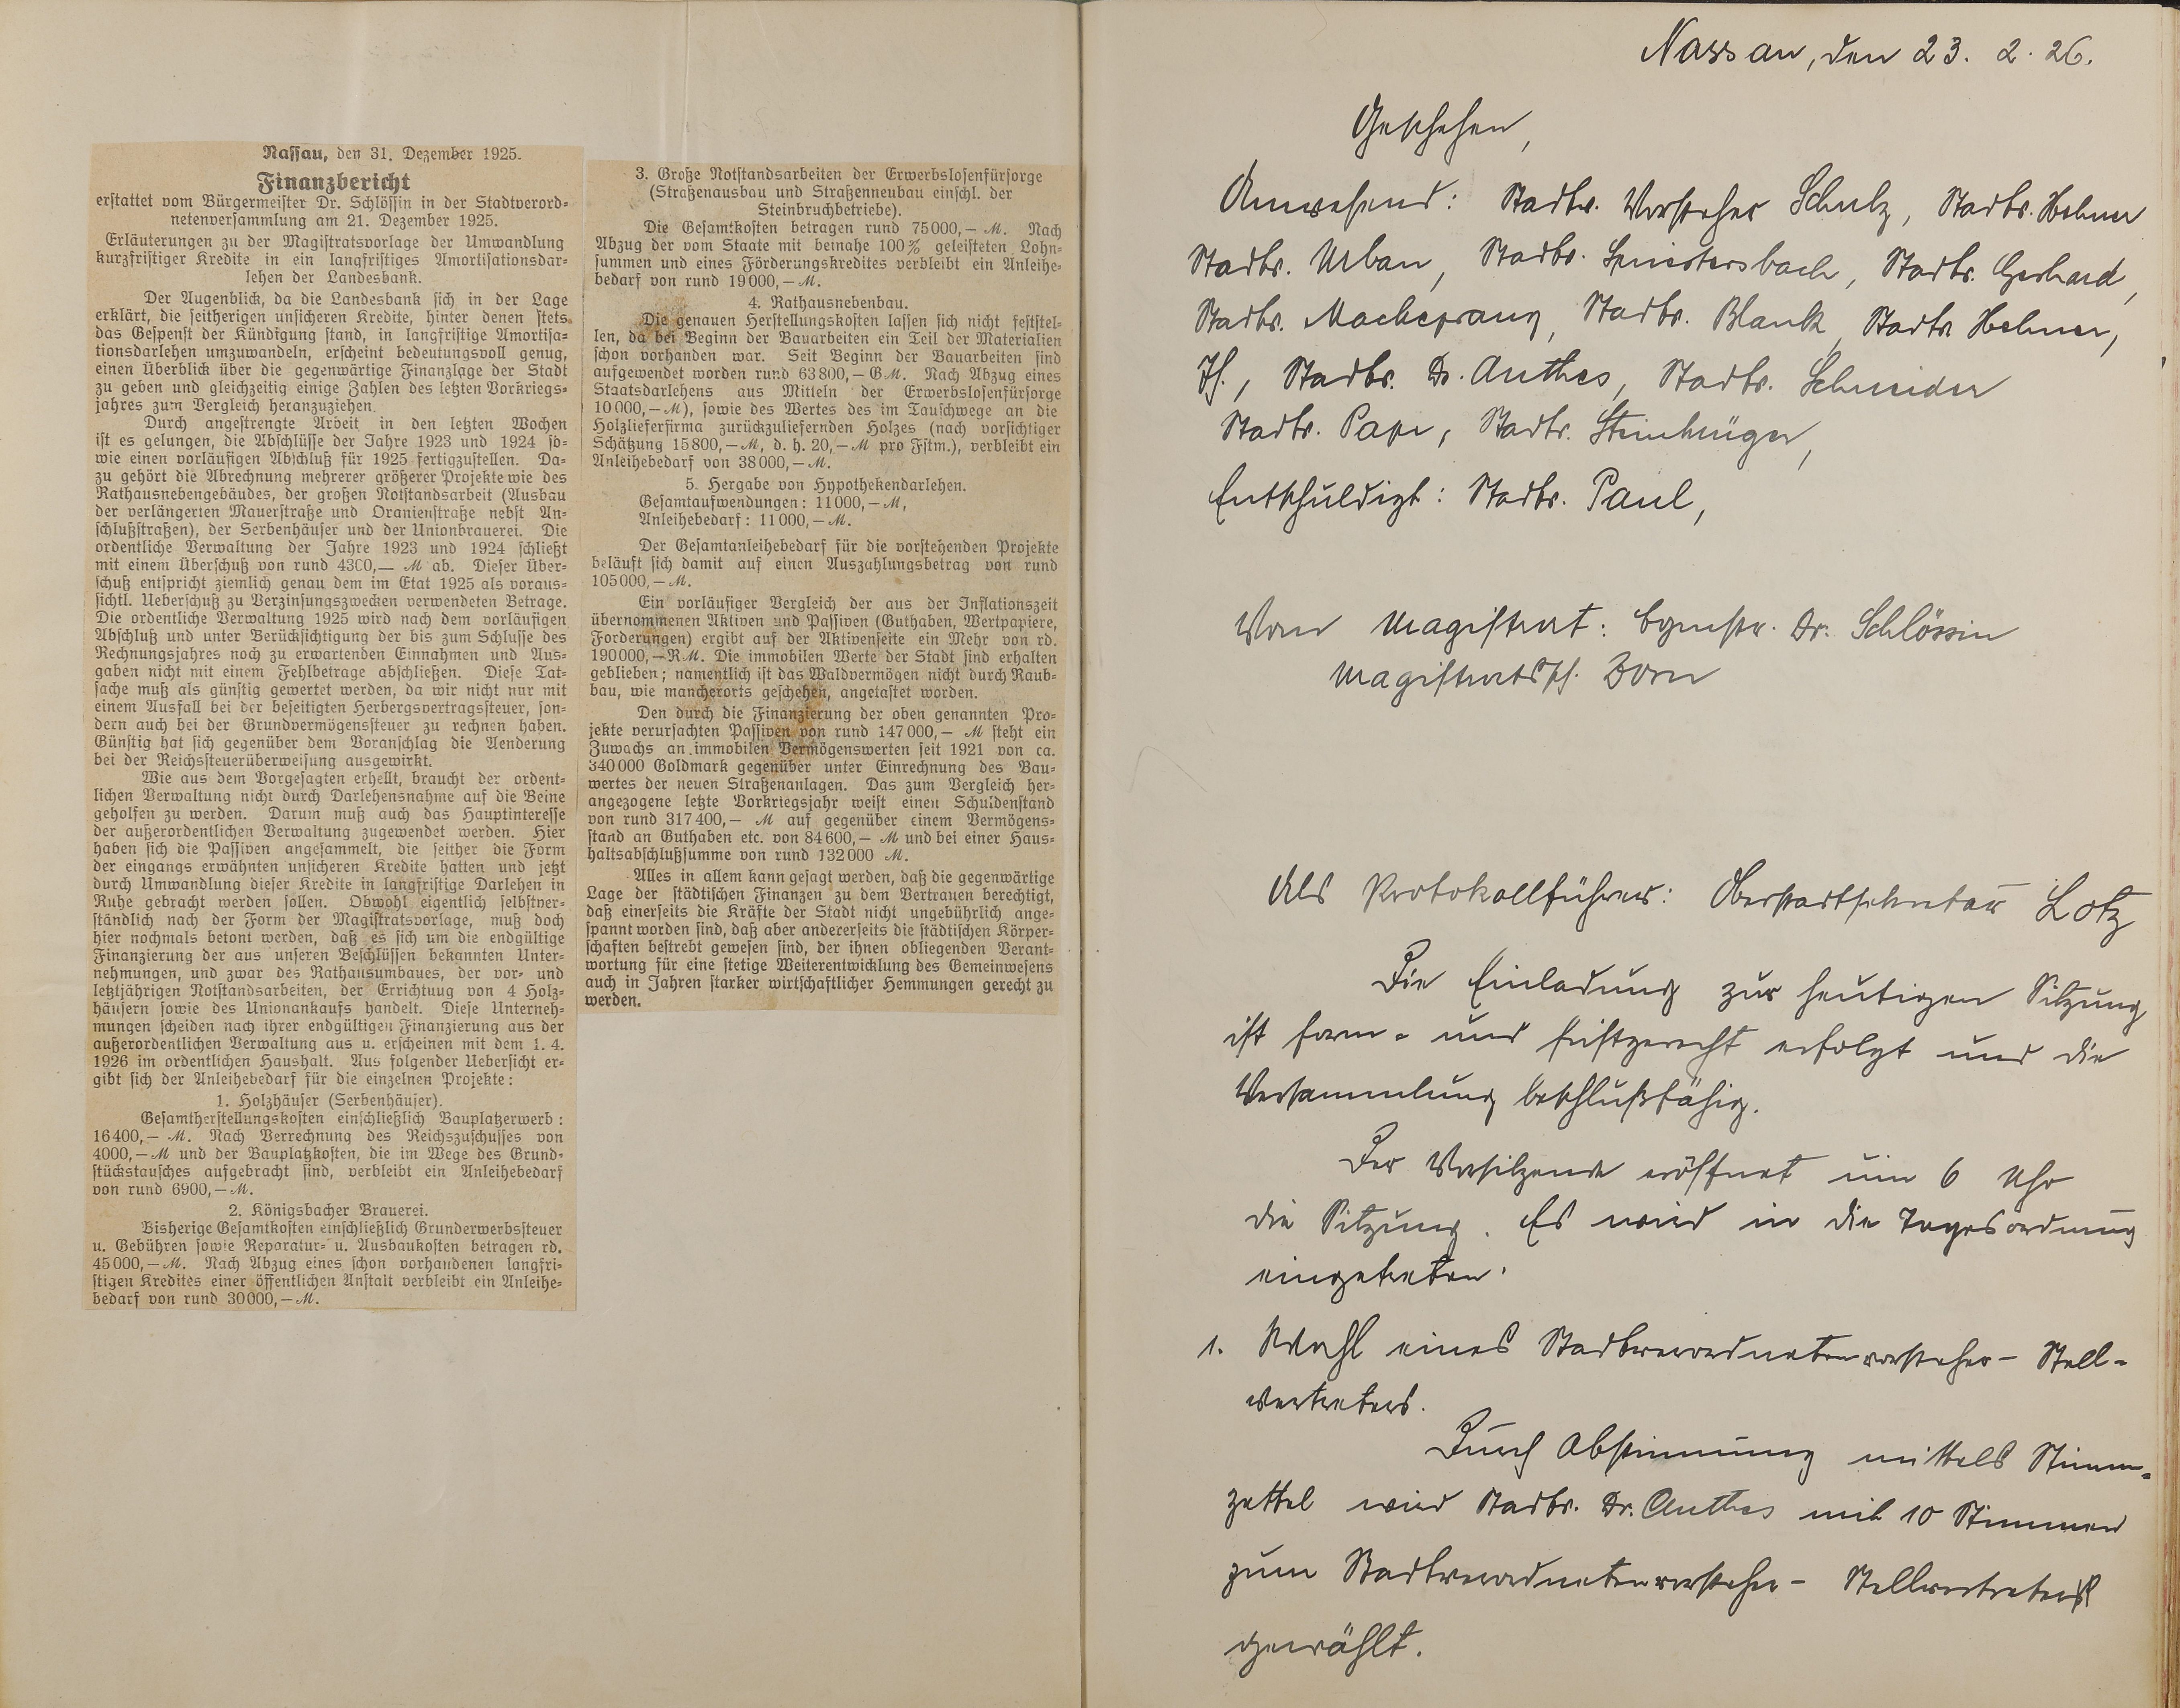 Nassau, den 31. Dezember 1925.
Finanzbericht
erstattet vom Bürgermeister Dr. Schlössin in der Stadtverord-
netenversammlung am 21. Dezember 1925.
Erläuterungen zu der Magistratsvorlage der Umwandlung
kurzfristiger Kredite in ein langfristiges Amortisationsdar-
lehen der Landesbank.
Der Augenblick, da die Landesbank sich in der Lage
erklärt, die seitherigen unsicheren Kredite, hinter denen stets
das Gespenst der Kündigung stand, in langfristige Amortisa-
tionsdarlehen umzuwandeln, erscheint bedeutungsvoll genug,
einen Überblick über die gegenwärtige Finanzlage der Stadt
zu geben und gleichzeitig einige Zahlen des letzten Vorkriegs-
jahres zum Vergleich heranzuziehen.
Durch angestrengte Arbeit in den letzten Wochen
ist es gelungen, die Abschlüsse der Jahre 1923 und 1924 so-
wie einen vorläufigen Abschluß für 1925 fertigzustellen. Da-
zu gehört die Abrechnung mehrerer größerer Projekte wie des
Rathausnebengebäudes, der großen Notstandsarbeit (Ausbau
der verlängerten Mauerstraße und Oranienstraße nebst An-
schlußstraßen), der Serbenhäuser und der Unionbrauerei. Die
ordentliche Verwaltung der Jahre 1923 und 1924 schließt
mit einem Überschuß von rund 4300,— M ab. Dieser Über-
schuß entspricht ziemlich genau dem im Etat 1925 als voraus-
sichtl. Ueberschuß zu Verzinsungszwecken verwendeten Betrage.
Die ordentliche Verwaltung 1925 wird nach dem vorläufigen
Abschluß und unter Berücksichtigung der bis zum Schlusse des
Rechnungsjahres noch zu erwartenden Einnahmen und Aus-
gaben nicht mit einem Fehlbetrage abschließen. Diese Tat-
sache muß als günstig gewertet werden, da wir nicht nur mit
einem Ausfall bei der beseitigten Herbergsvertragssteuer, son-
dern auch bei der Grundvermögenssteuer zu rechnen haben.
Günstig hat sich gegenüber dem Voranschlag die Aenderung
bei der Reichssteuerüberweisung ausgewirkt.
Wie aus dem Vorgesagten erhellt, braucht der ordent-
lichen Verwaltung nicht durch Darlehensnahme auf die Beine
geholfen zu werden. Darum muß auch das Hauptinteresse
der außerordentlichen Verwaltung zugewendet werden. Hier
haben sich die Passiven angesammelt, die seither die Form
der eingangs erwähnten unsicheren Kredite hatten und jetzt
durch Umwandlung dieser Kredite in langfristige Darlehen in
Ruhe gebracht werden sollen. Obwohl eigentlich selbstver-
ständlich nach der Form der Magistratsvorlage, muß doch
hier nochmals betont werden, daß es sich um die endgültige
Finanzierung der aus unseren Beschlüssen bekannten Unter-
nehmungen, und zwar des Rathausumbaues, der vor- und
letztjährigen Notstandsarbeiten, der Errichtuug von 4 Holz-
häusern sowie des Unionankaufs handelt. Diese Unterneh-
mungen scheiden nach ihrer endgültigen Finanzierung aus der
außerordentlichen Verwaltung aus u. erscheinen mit dem 1. 4.
1926 im ordentlichen Haushalt. Aus folgender Uebersicht er-
gibt sich der Anleihebedarf für die einzelnen Projekte:
1. Holzhäuser (Serbenhäuser).
Gesamtherstellungskosten einschließlich Bauplatzerwerb:
16400,— M. Nach Verrechnung des Reichszuschusses von
4000,— M und der Bauplatzkosten, die im Wege des Grund-
stückstausches aufgebracht sind, verbleibt ein Anleihebedarf
von rund 6900,— M.
2. Königsbacher Brauerei.
Bisherige Gesamtkosten einschließlich Grunderwerbssteuer
u. Gebühren sowie Reparatur- u. Ausbaukosten betragen rd.
45000,— M. Nach Abzug eines schon vorhandenen langfri-
stigen Kredites einer öffentlichen Anstalt verbleibt ein Anleihe-
bedarf von rund 30000,— M.
3. Große Notstandsarbeiten der Erwerbslosenfürsorge
(Straßenausbau und Straßenneubau einschl. der
Steinbruchbetriebe).
Die Gesamtkosten betragen rund 75000,— M. Nach
Abzug der vom Staate mit beinahe 100% geleisteten Lohn-
summen und eines Förderungskredites verbleibt ein Anleihe-
bedarf von rund 19000,— M.
4. Rathausnebenbau.
Die genauen Herstellungskosten lassen sich nicht feststel-
len, da bei Beginn der Bauarbeiten ein Teil der Materialien
schon vorhanden war. Seit Beginn der Bauarbeiten sind
aufgewendet worden rund 63800,— GM. Nach Abzug eines
Staatsdarlehens aus Mitteln der Erwerbslosenfürsorge
10000,— M), sowie des Wertes des im Tauschwege an die
Holzlieferfirma zurückzuliefernden Holzes (nach vorsichtiger
Schätzung 15800,— M, d. h. 20,— M pro Fstm.), verbleibt ein
Anleihebedarf von 38000,— M.
5. Hergabe von Hypothekendarlehen.
Gesamtaufwendungen: 11000,— M,
Anleihebedarf: 11000,— M.
Der Gesamtanleihebedarf für die vorstehenden Projekte
beläuft sich damit auf einen Auszahlungsbetrag von rund
105000,— M.
Ein vorläufiger Vergleich der aus der Inflationszeit
übernommenen Aktiven und Passiven (Guthaben, Wertpapiere,
Forderungen) ergibt auf der Aktivenseite ein Mehr von rd.
190000,— RM. Die immobilen Werte der Stadt sind erhalten
geblieben; namentlich ist das Waldvermögen nicht durch Raub-
bau, wie mancherorts geschehen, angetastet worden.
Den durch die Finanzierung der oben genannten Pro-
jekte verursachten Passiven von rund 147000,— M steht ein
Zuwachs an immobilen Vermögenswerten seit 1921 von ca.
340000 Goldmark gegenüber unter Einrechnung des Bau-
wertes der neuen Straßenanlagen. Das zum Vergleich her-
angezogene letzte Vorkriegsjahr weist einen Schuldenstand
von rund 317400,— M auf gegenüber einem Vermögens-
stand an Guthaben etc. von 84600,— M und bei einer Haus-
haltsabschlußsumme von rund 132000 M.
Alles in allem kann gesagt werden, daß die gegenwärtige
Lage der städtischen Finanzen zu dem Vertrauen berechtigt,
daß einerseits die Kräfte der Stadt nicht ungebührlich ange-
spannt worden sind, daß aber andererseits die städtischen Körper-
schaften bestrebt gewesen sind, der ihnen obliegenden Verant-
wortung für eine stetige Weiterentwicklung des Gemeinwesens
auch in Jahren starker wirtschaftlicher Hemmungen gerecht zu
werden.
Nassau, den 23. 2. 26.
Geschehen,
Anwesend: Stadtv. Vorsteher Schulz, Stadtv. Hehner
Stadtv. Urban, Stadtv. Stadtv. Gerhard,
Stadtv. Mackeprang, Stadtv. Blank, Stadtv. Hehner,
Th., Stadtv. Dr. Anthes, Stadtv. Schneider
Stadtv. Pape, Stadtv.
Entschuldigt: Stadtv. Paul,
Vom Magistrat: Bgmstr. Dr. Schlössin
Magistratssch. Born
Als Protokollführer: Oberstadtsekretär Lotz
Die Einladung zur heutigen Sitzung
ist form- und fristgerecht erfolgt und die
Versammlung beschlußfähig.
Der Vorsitzende eröffnet um 6 Uhr
die Sitzung. Es wird in die Tagesordnung
eingetreten.
1. Wahl eines Stadtverordnetenvorsteher-Stell-
vertreters.
Durch Abstimmung mittels Stimm-
zettel wird Stadtv. Dr. Anthes mit 10 Stimmen
zum Stadtverordnetenvorsteher-Stellvertreter
gewählt.